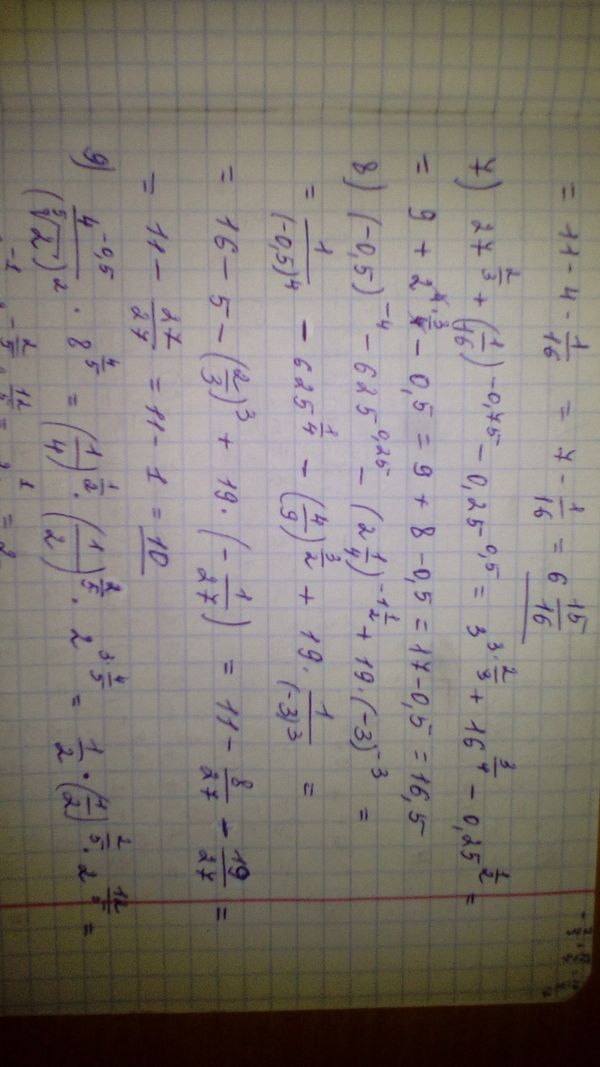 = 11 - 4 - 1/16 = 7 - 1/16 = 6 15/16
7) 27^(2/3) + (1/16)^(-0,75) - 0,25^(0,5) = 3^(3·2/3) + 16^(3/4) - 0,25^(1/2) =
= 9 + 2^(4·3/4) - 0,5 = 9 + 8 - 0,5 = 17 - 0,5 = 16,5
8) (-0,5)^(-4) - 625^(0,25) - (2 1/4)^(-1 1/2) + 19 · (-3)^(-3) =
= 1/(-0,5)^4 - 625^(1/4) - (4/9)^(3/2) + 19 · 1/(-3)^3 =
= 16 - 5 - (2/3)^3 + 19 · (- 1/27) = 11 - 8/27 - 19/27 =
= 11 - 27/27 = 11 - 1 = 10
9) 4^(-0,5)/(⁵√2)^2 · 8^(4/5) = (1/4)^(1/2) · (1/2)^(2/5) · 2^(3·4/5) = 1/2 · (1/2)^(2/5) · 2^(12/5) =